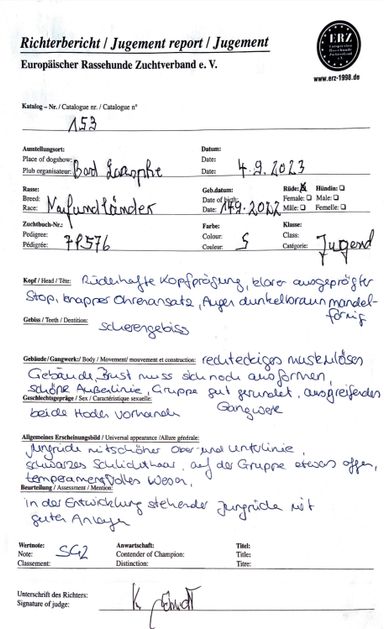 Richterbericht / Jugement report / Jugement
Europäischer Rassehunde Zuchtverband e. V.
ERZ
www.erz-1998.de
Katalog – Nr. / Catalogue nr. / Catalogue n°
153
Ausstellungsort: Datum:
Place of dogshow: Bad Date: 4.9.2023
Plub organisateur: Date:
Rasse: Geb.datum: Rüde: ☒ Hündin: ☐
Breed: Neufundländer Date of birth: Female: ☐ Male: ☐
Race: Date: 2022 Mâle: ☐ Femelle: ☐
Zuchtbuch-Nr.: Farbe: Klasse:
Pedigree: 77576 Colour: S Class: Jugend
Pédigrée: Couleur: Catégorie:
Kopf / Head / Tête: Rüdenhafte Kopfprägung, klarer ausgeprägter
Stop, knapper Ohrenansatz, Augen dunkelbraun mandel-
förmig
Gebiss / Teeth / Dentition:
scherengebiss
Gebäude/Gangwerk: / Body / Movement/ mouvement et construction: rechteckiges muskulöses
Gebäude, Brust muss sich noch ausformen,
schöne Außenlinie, Gruppe gut gerundet, ausgreifendes
Geschlechtsgepräge / Sex / Caractéristique sexuelle: Gangwerk
beide Hoden vorhanden
Allgemeines Erscheinungsbild / Universal appearance /Allure générale:
Jungrüde mit schöner Ober und Unterlinie,
schwarzes Schlichthaar, auf der Gruppe etwas offen,
temperamentvolles Wesen,
Beurteilung / Assessment / Mention:
in der Entwicklung stehender Jungrüde mit
guten Anlagen
Wertnote: Anwartschaft: Titel:
Note: SG2 Contender of Champion: Title:
Classement: Distinction: Titre:
Unterschrift des Richters:
Signature of judge: